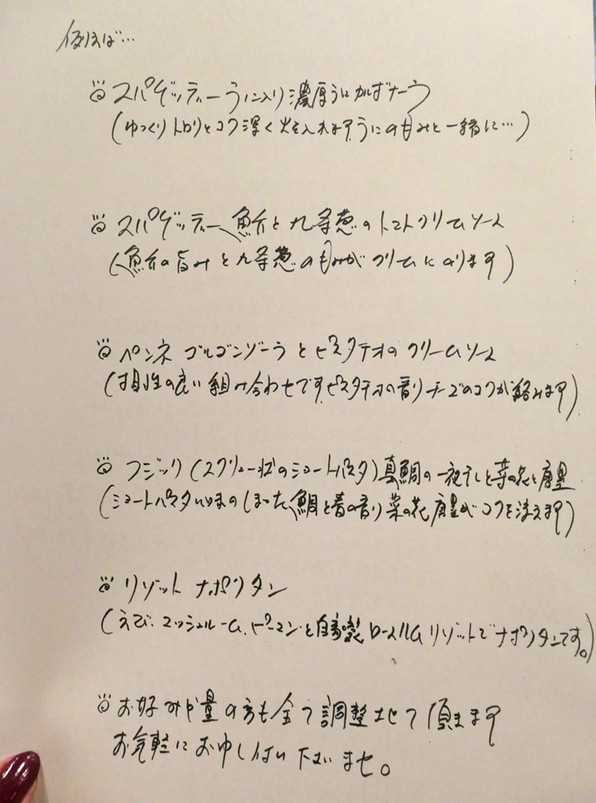 例えば…
スパゲッティー うに入り濃厚うにカルボナーラ
(ゆっくりトロリとコク深く火を入れます。うにのもみと一緒に…)
スパゲッティー 魚介と九条葱のトマトクリームソース
(魚介の旨みと九条葱の がクリームになります)
ペンネ ゴルゴンゾーラとピスタチオのクリームソース
(相性の良い組み合わせです。ピスタチオの香りチーズのコクが絡みます)
フジッリ (スクリュー状のショートパスタ) 真鯛の一夜干しと菜の花と唐墨
(ショートパスタに のしまった鯛と春の香り菜の花、唐墨がコクを添えます)
リゾット ナポリタン
(えび、マッシュルーム、ピーマンと自家製ロースハム リゾットでナポリタンです。)
お好みや量の方も全て調整させて頂きます
お気軽にお申し付け下さいませ。